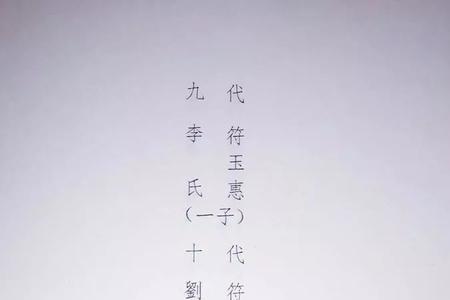 九代
符玉惠
李氏
(一子)
十代
符
劉